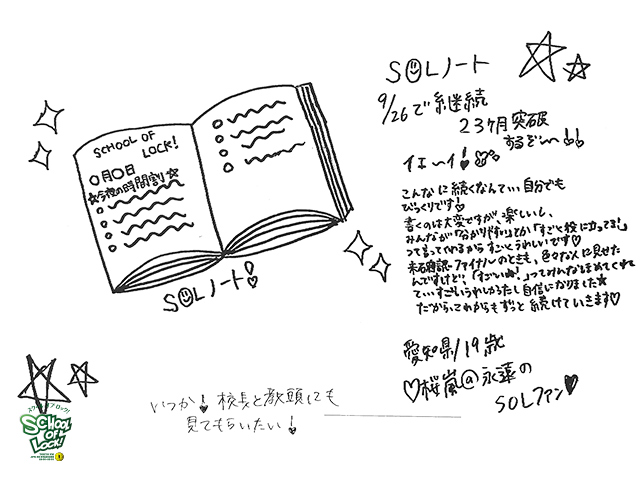 SCHOOL OF
LOCK!
○月○日
☆今夜の時間割☆
SOLノート!
SOLノート
9/26で継続
23ヶ月突破
するぞ〜!!
イェ〜イ!
こんなに続くなんて…自分でも
びっくりです!
書くのは大変ですが、楽しいし、
みんなが「分かりやすい」とか「すごく役に立ってる!」
って言ってくれるからすごくうれしいです♡
未確認フェスファイナルのときも、色々な人に見せた
んですけど、「すごいね!」ってみんなほめてくれ
て…すごいうれしかったし自信になりました☆
だから、これからもずっと続けていきます♡
愛知県/19歳
♡桜嵐@永遠の
SOLファン♥
いつか!校長と教頭にも
見てもらいたい!
スクールオブロック!
SCHOOL
OF
LOCK!